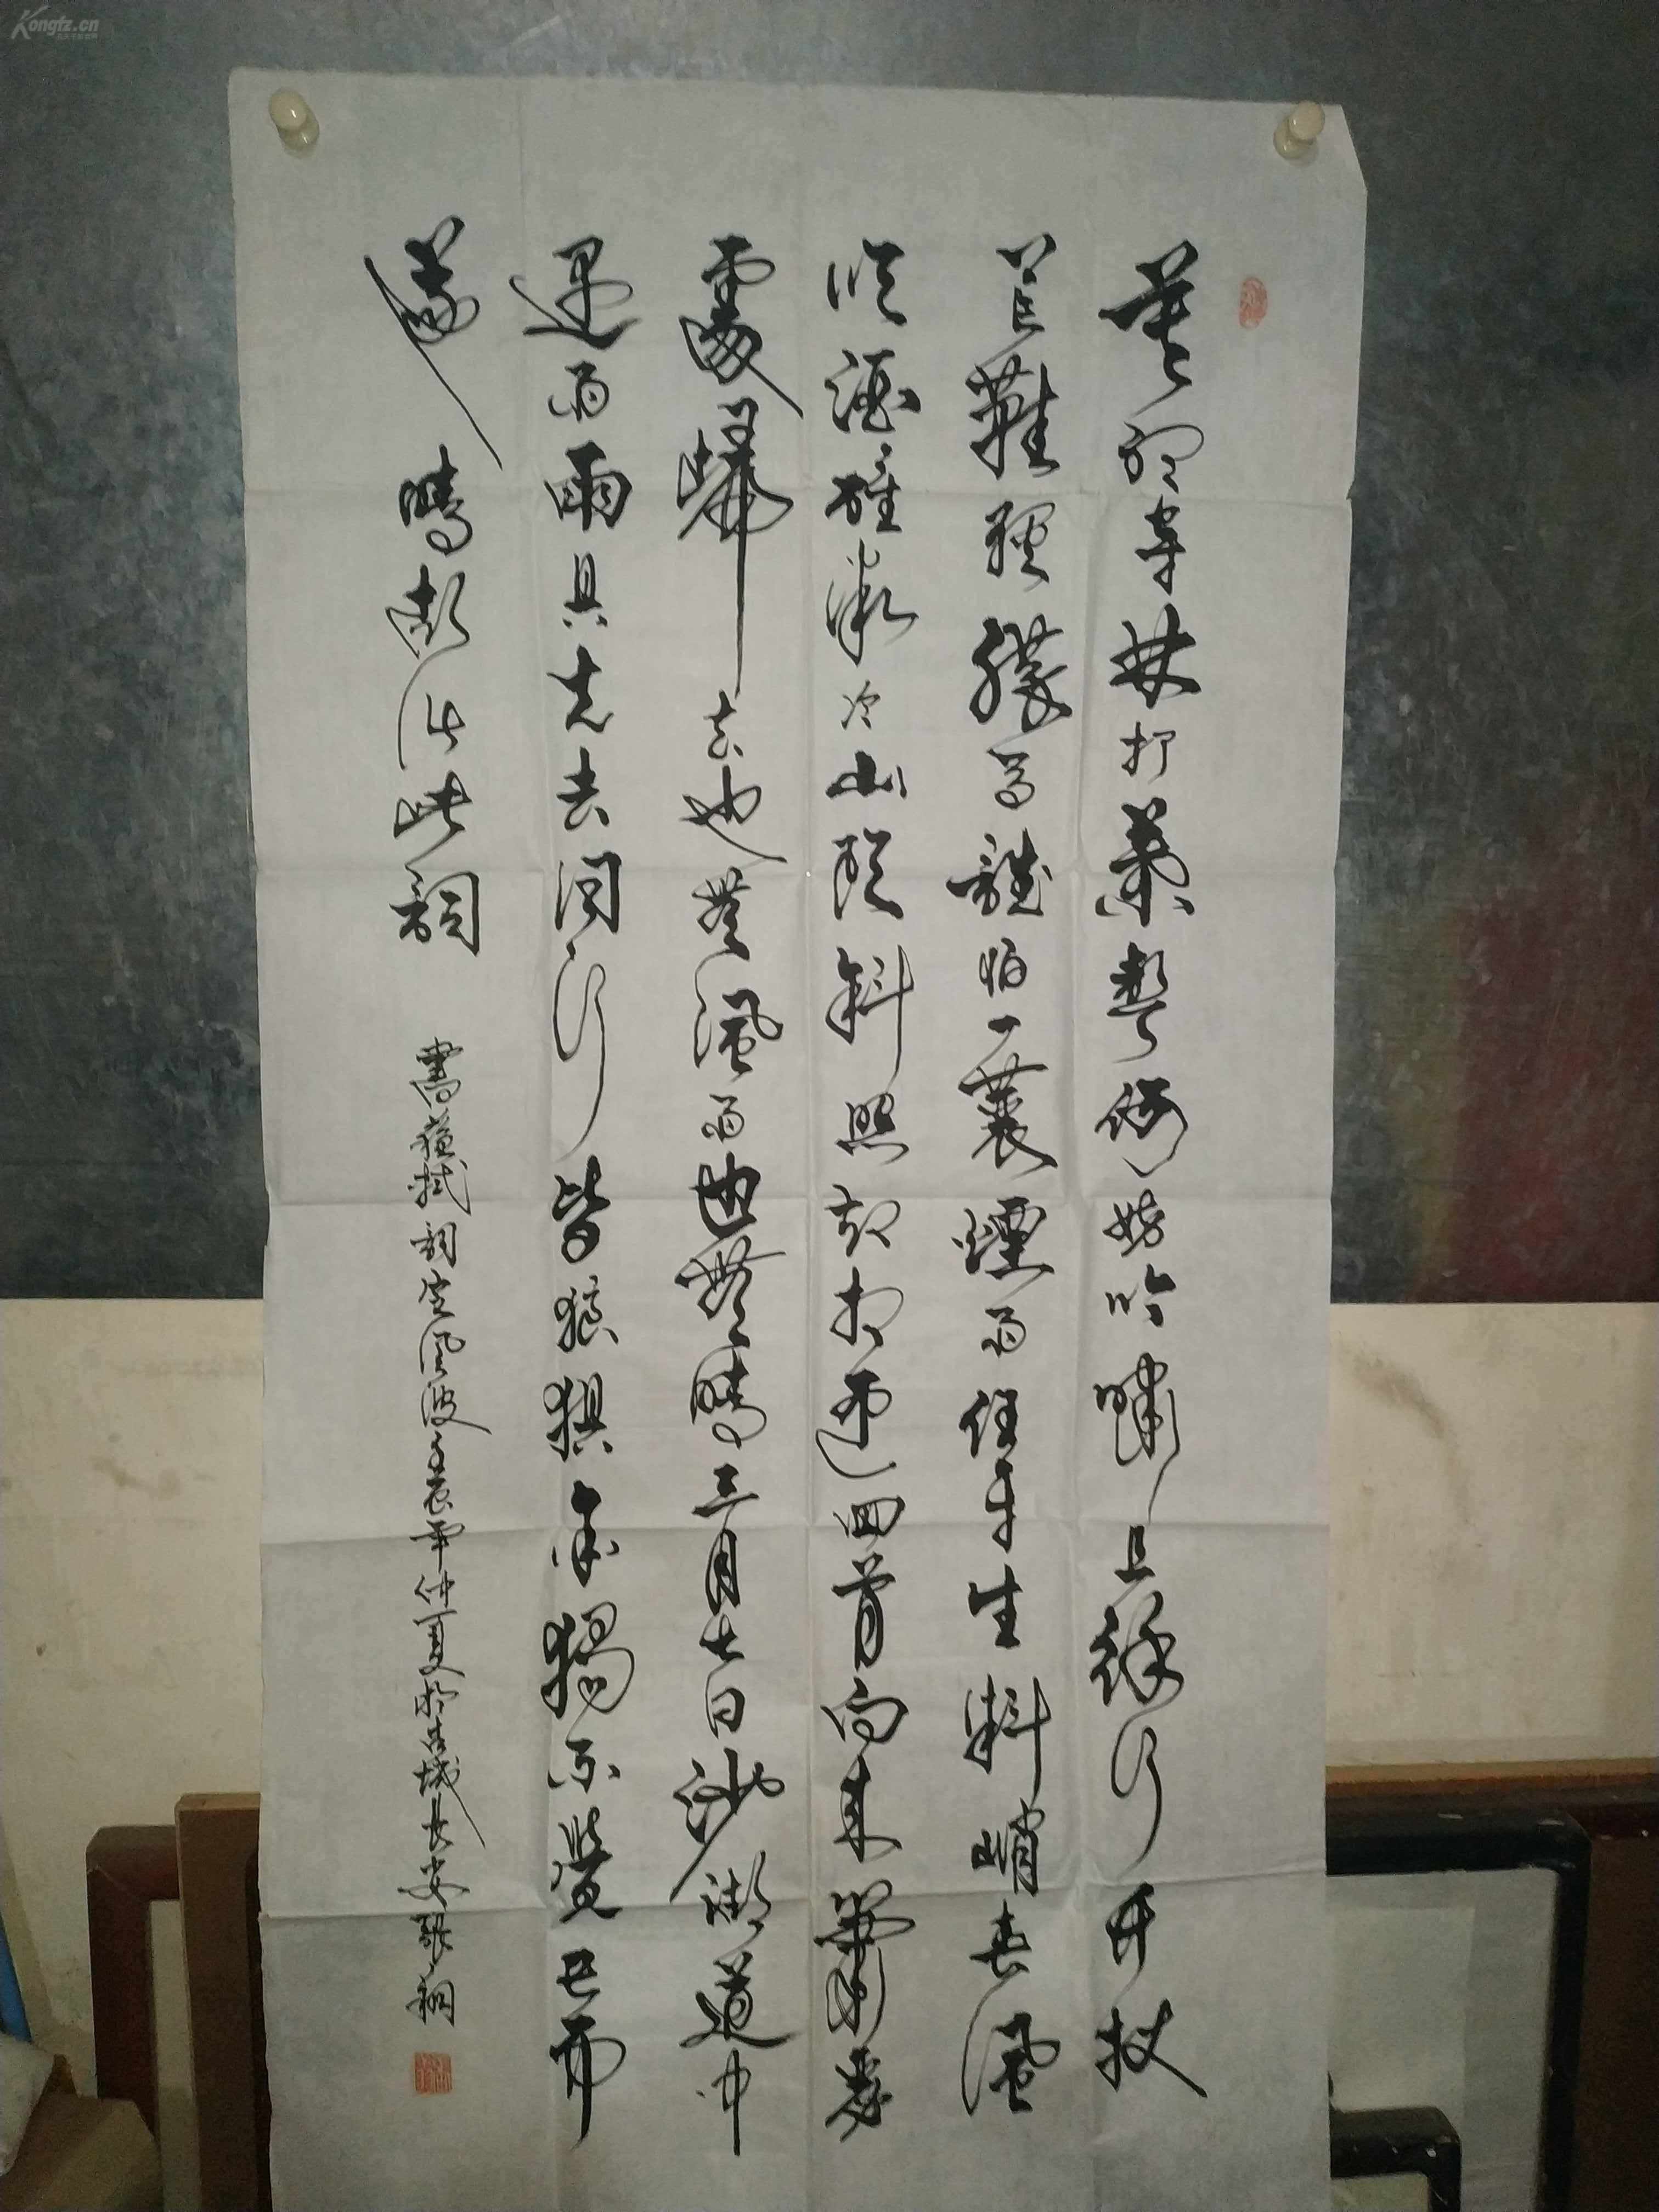 莫聽穿林打葉聲何妨吟嘯且徐行竹杖
芒鞋輕勝馬誰怕一蓑煙雨任平生料峭春風
吹酒醒微冷山頭斜照却相迎回首向來蕭瑟
處歸去也無風雨也無晴三月七日沙湖道中
遇雨雨具先去同行皆狼狽余獨不覺已而
遂晴故作此詞
書蘇軾詞定風波壬辰年仲夏於古城長安張
Kongfz.cn